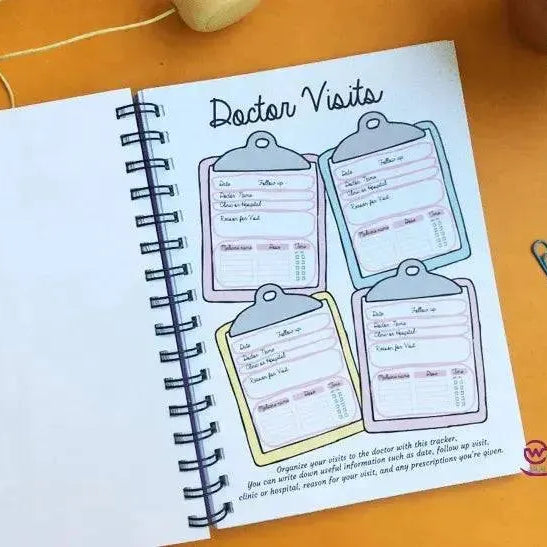 Doctor Visits
Date Follow up
Doctor Name
Clinic or Hospital
Reason for Visit
Medicine name Dose Time
Date Follow up
Doctor Name
Clinic or Hospital
Reason for Visit
Medicine name Dose Time
Date Follow up
Doctor Name
Clinic or Hospital
Reason for Visit
Medicine name Dose Time
Date Follow up
Doctor Name
Clinic or Hospital
Reason for Visit
Medicine name Dose Time
Organize your visits to the doctor with this tracker.
You can write down useful information such as date, follow up visit,
clinic or hospital, reason for your visit, and any prescriptions you're given.
W